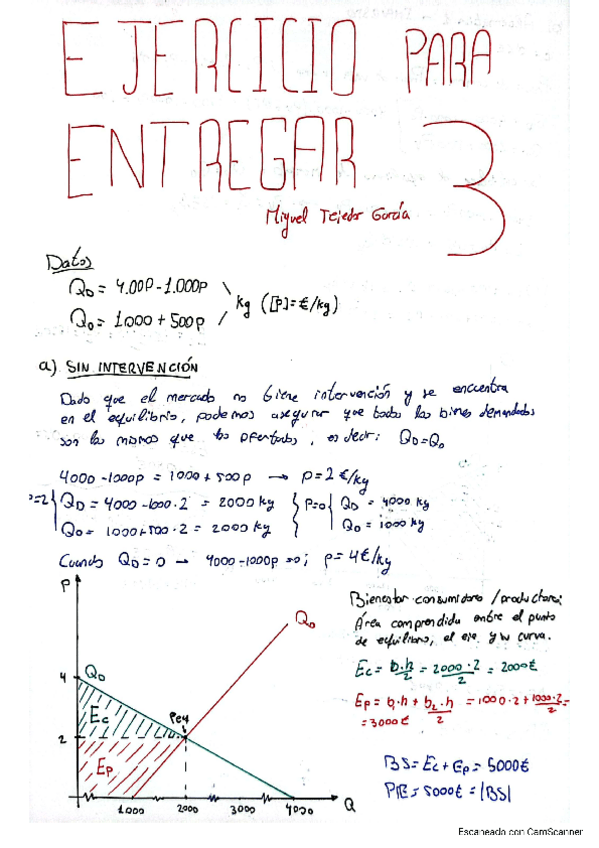 EJERCICIO PARA
ENTREGAR 3
Miguel Tejedor García
Datos
QD = 4.00P - 1.000p
QO = 1.000 + 500p
kg ([P]=€/kg)
a) SIN INTERVENCIÓN
Dado que el mercado no tiene intervención y se encuentra
en el equilibrio, podemos asegurar que todos los bienes demandados
son los mismos que los ofertados, es decir: QD=QO
4000 - 1000p = 1000 + 500p → p=2 €/kg
p=2 { QD = 4000 - 1000·2 = 2000 kg
QO = 1000+500·2 = 2000 kg
P=0 { QD = 4000 kg
QO = 1000 kg
Cuando QD = 0 → 4000 - 1000p = 0; p = 4€/kg
P
QO
4
QD
Ec
Peq
2
Ep
1000
2000
3000
4000
Q
Bienestar consumidores / productores:
Área comprendida entre el punto
de equilibrio, el eje y su curva.
Ec = b·h/2 = 2000·2/2 = 2000€
Ep = b·h + b2·h/2 = 1000·2 + 1000·2/2 =
= 3000€
BS = Ec + Ep = 5000€
PIE = 5000€ = |BS|
Escaneado con CamScanner